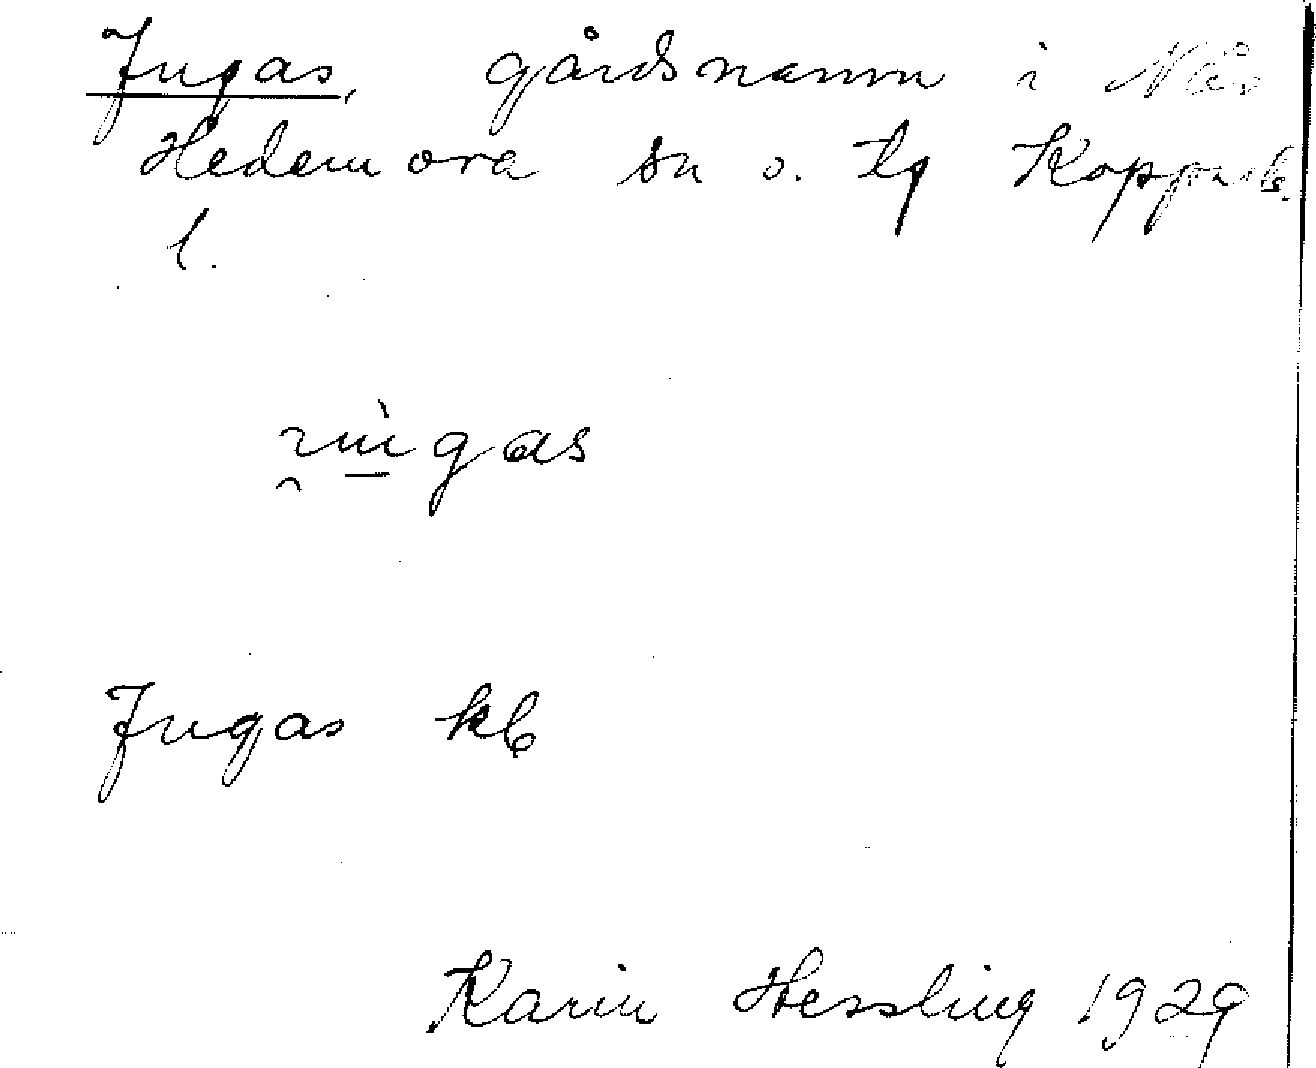 Jugas, gårdsnamn i Nås
Hedemora sn o. tg Kopparb.
l.
Jugas kb
Karin Hessling 1929